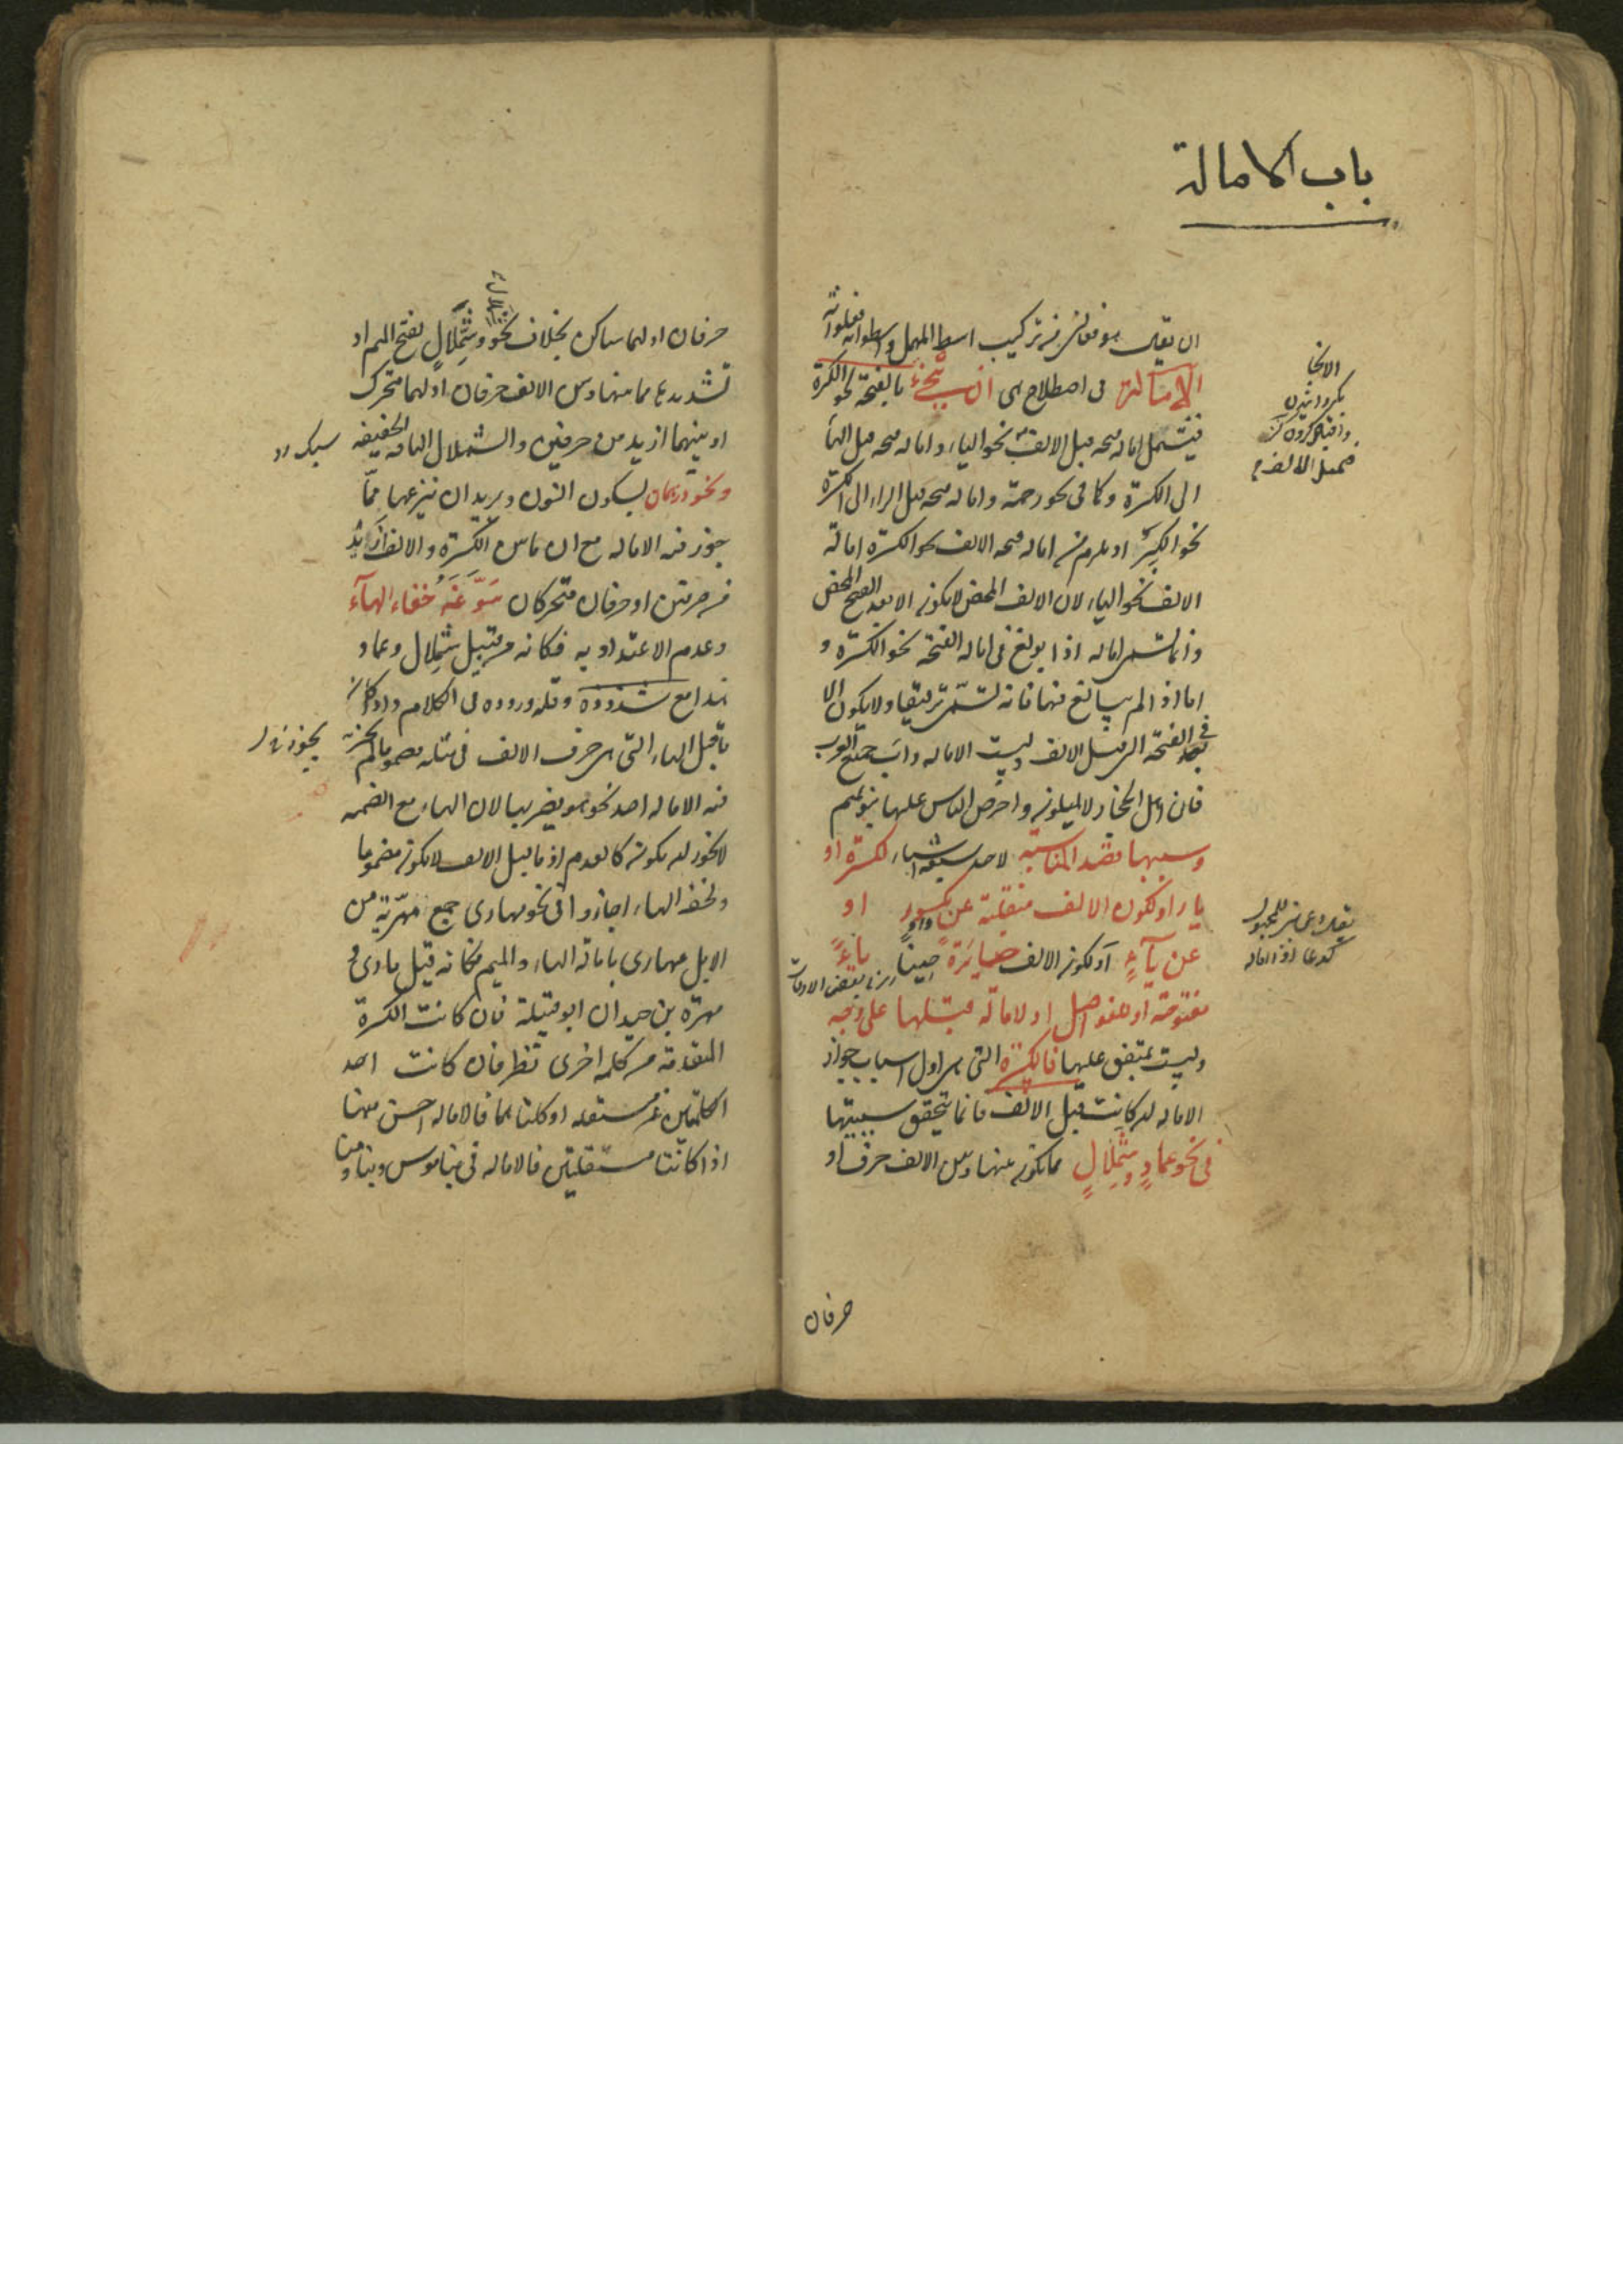 باب الامالة
ان يقال هو فعلان من تركيب اسط المهمل واسطوانة افعلوانة
الامالة فى اصطلاحهم ان ينحى بالفتحة نحو الكسرة
فيشمل امالة فتحة قبل الالف نحو الياء وامالة فتحة قبل الهاء
الى الكسرة كما فى نحو رحمة وامالة فتحة قبل الراء الى الكسرة
نحو الكبر ويلزم من امالة فتحة الالف نحو الكسرة امالة
الالف نحو الياء لان الالف المحض لا يكون الا بعد الفتح المحض
وانما تسمى امالة اذا بولغ فى امالة الفتحة نحو الكسرة و
اما اذا لم يبالغ فيها فانه تسمى ترقيقا ولا يكون الا
فى الفتحة التى قبل الالف وليست الامالة دأب جميع العرب
فان اهل الحجاز لا يميلون واحرص الناس عليها بنو تميم
وسببها قصد المناسبة لاحد سبعة اشياء لكسرة او
ياء او لكون الالف منقلبة عن مكسور او
واو
عن ياء او لكون الالف صائرة حينا ياء
مفتوحة او للفواصل او لامالة قبلها على وجه
وليست بمتفق عليها فالكسرة التى هى اول اسباب جواز
الامالة ان كانت قبل الالف فانما يتحقق سببيتها
فى نحو عماد وشملال مما يكون بينها وبين الالف حرف او
حرفان
حرفان اولهما ساكن بخلاف نحو وشملال بفتح الميم او
تشديدها مما بينها وبين الالف حرفان اولهما متحرك
او بينهما ازيد من حرفين والشملال الناقة الخفيفة
ونحو درهمان بسكون النون ويريد ان ينزعها مما
جوز فيه الامالة مع ان ما بين الكسرة والالف ازيد
من حرفين او حرفان متحركان سوغه خفاء الهاء
وعدم الاعتداد به فكانه من قبيل شملال وعماد
هذا مع شذوذه وقلة وروده فى الكلام ولو كان
ما قبل الهاء التى هى حرف الالف فى مثله مضموما لم يجز
فيه الامالة احد نحو هو يضربها لان الهاء مع الضمة
لا يجوز ان يكون كالعدم اذ ما قبل الالف لا يكون مضموما
ولخفة الهاء اجازوا فى نحو مهارى جمع مهرية من
الابل مهارى بامالة الهاء والميم فكانه قيل مارى و
مهرة بن حيدان ابو قبيلة فان كانت الكسرة
المتقدمة من كلمة اخرى نظر فان كانت احد
الكلمتين غير مستقلة او كلتاهما فالامالة احسن منها
اذا كانتا مستقلتين فالامالة فى بنا موس وبنا ومنا